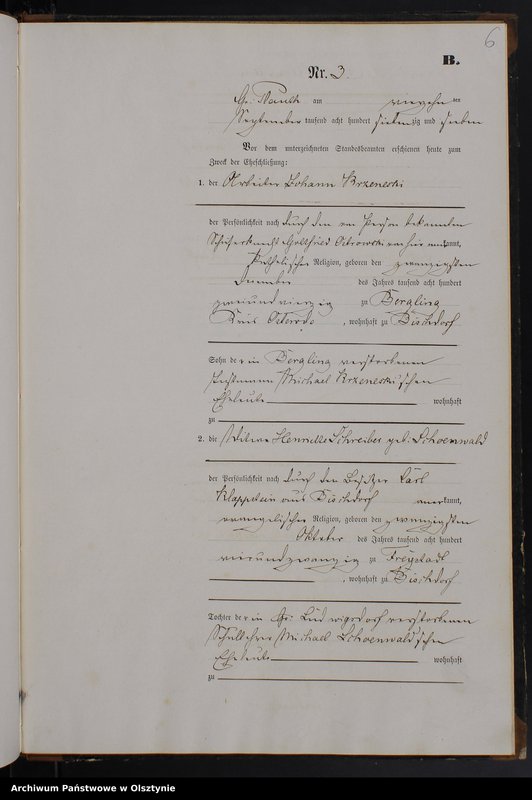 6
B.
Nr. 3.
Gr. am vierzehn ten
September tausend acht hundert siebenzig und sieben
Vor dem unterzeichneten Standesbeamten erschienen heute zum
Zweck der Eheschließung:
1. der Arbeiter Johann Krzeneski
der Persönlichkeit nach durch den von Person bekannten
Gottfried Ostrowski von hier anerkannt,
Religion, geboren den zwanzigsten
Dezember des Jahres tausend acht hundert
zweiundvierzig zu Bergling
Kreis Osterode, wohnhaft zu Bischdorf
Sohn der in Bergling verstorbenen
Michael Krzeneski'schen
Eheleute wohnhaft
zu
2. die Witwe Henriette Schreiber geb. Schoenwald
der Persönlichkeit nach durch den Besitzer Karl
Klapstein aus Bischdorf anerkannt,
evangelischer Religion, geboren den zwanzigsten
Oktober des Jahres tausend acht hundert
vierundzwanzig zu Freystadt
, wohnhaft zu Bischdorf
Tochter der in Gr. Ludwigsdorf verstorbenen
Schullehrer Michael Schoenwald'schen
Eheleute wohnhaft
zu
Archiwum Państwowe w Olsztynie